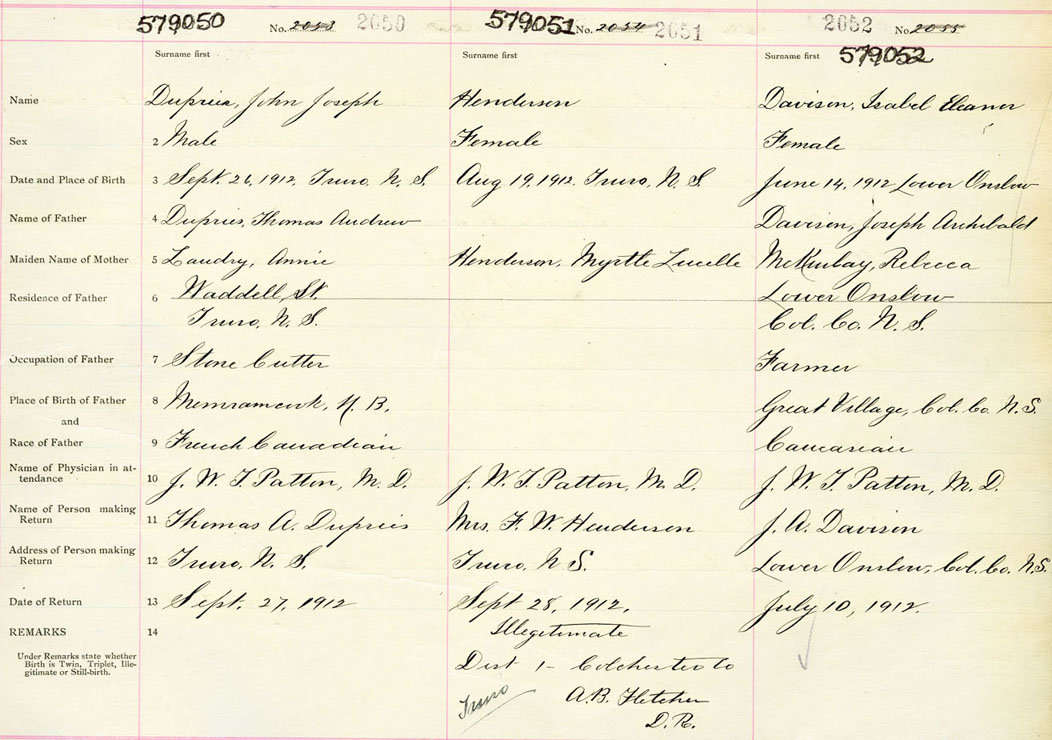 579050 No. 2053 2050 579051 No. 2054 2051 2052 No. 2055
Surname first Surname first Surname first 579052
Name Dupries, John Joseph Henderson Davison, Isabel Eleanor
Sex 2 Male Female Female
Date and Place of Birth 3 Sept. 26, 1912. Truro, N. S. Aug 19, 1912. Truro, N. S. June 14, 1912 Lower Onslow
Name of Father 4 Dupries, Thomas Andrew Davison, Joseph Archibald
Maiden Name of Mother 5 Landry, Annie Henderson, Myrtle Lucelle McKinlay, Rebecca
Residence of Father 6 Waddell St. Lower Onslow
Truro, N. S. Col. Co. N. S.
Occupation of Father 7 Stone Cutter Farmer
Place of Birth of Father 8 Memramcook, N. B. Great Village, Col. Co. N. S.
and
Race of Father 9 French Canadian Caucasian
Name of Physician in at-
tendance 10 J. W. T. Patton, M. D. J. W. T. Patton, M. D. J. W. T. Patton, M. D.
Name of Person making
Return 11 Thomas A. Dupries Mrs. F. W. Henderson J. A. Davison
Address of Person making
Return 12 Truro, N. S. Truro, N S. Lower Onslow, Col. Co. N. S.
Date of Return 13 Sept. 27, 1912 Sept 28, 1912. July 10, 1912.
REMARKS 14 Illegitimate
Under Remarks state whether
Birth is Twin, Triplet, Ille-
gitimate or Still-birth.
Dist 1 - Colchester Co
Truro A.B. Fletcher
D. R.